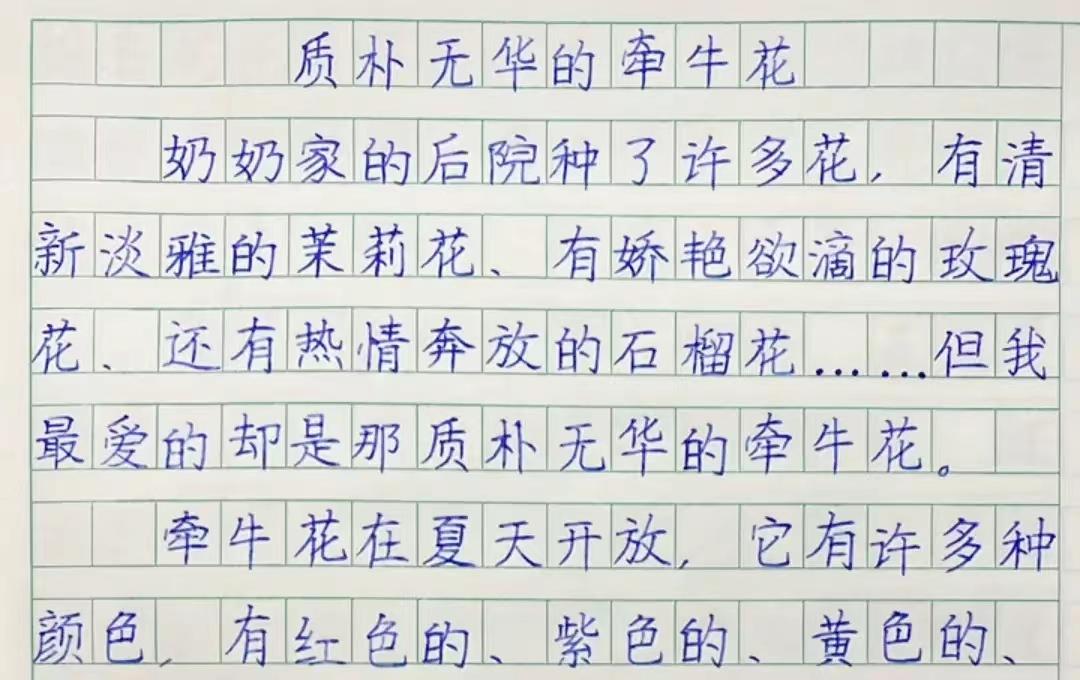 质朴无华的牵牛花
奶奶家的后院种了许多花，有清
新淡雅的茉莉花、有娇艳欲滴的玫瑰
花、还有热情奔放的石榴花……但我
最爱的却是那质朴无华的牵牛花。
牵牛花在夏天开放，它有许多种
颜色，有红色的、紫色的、黄色的、